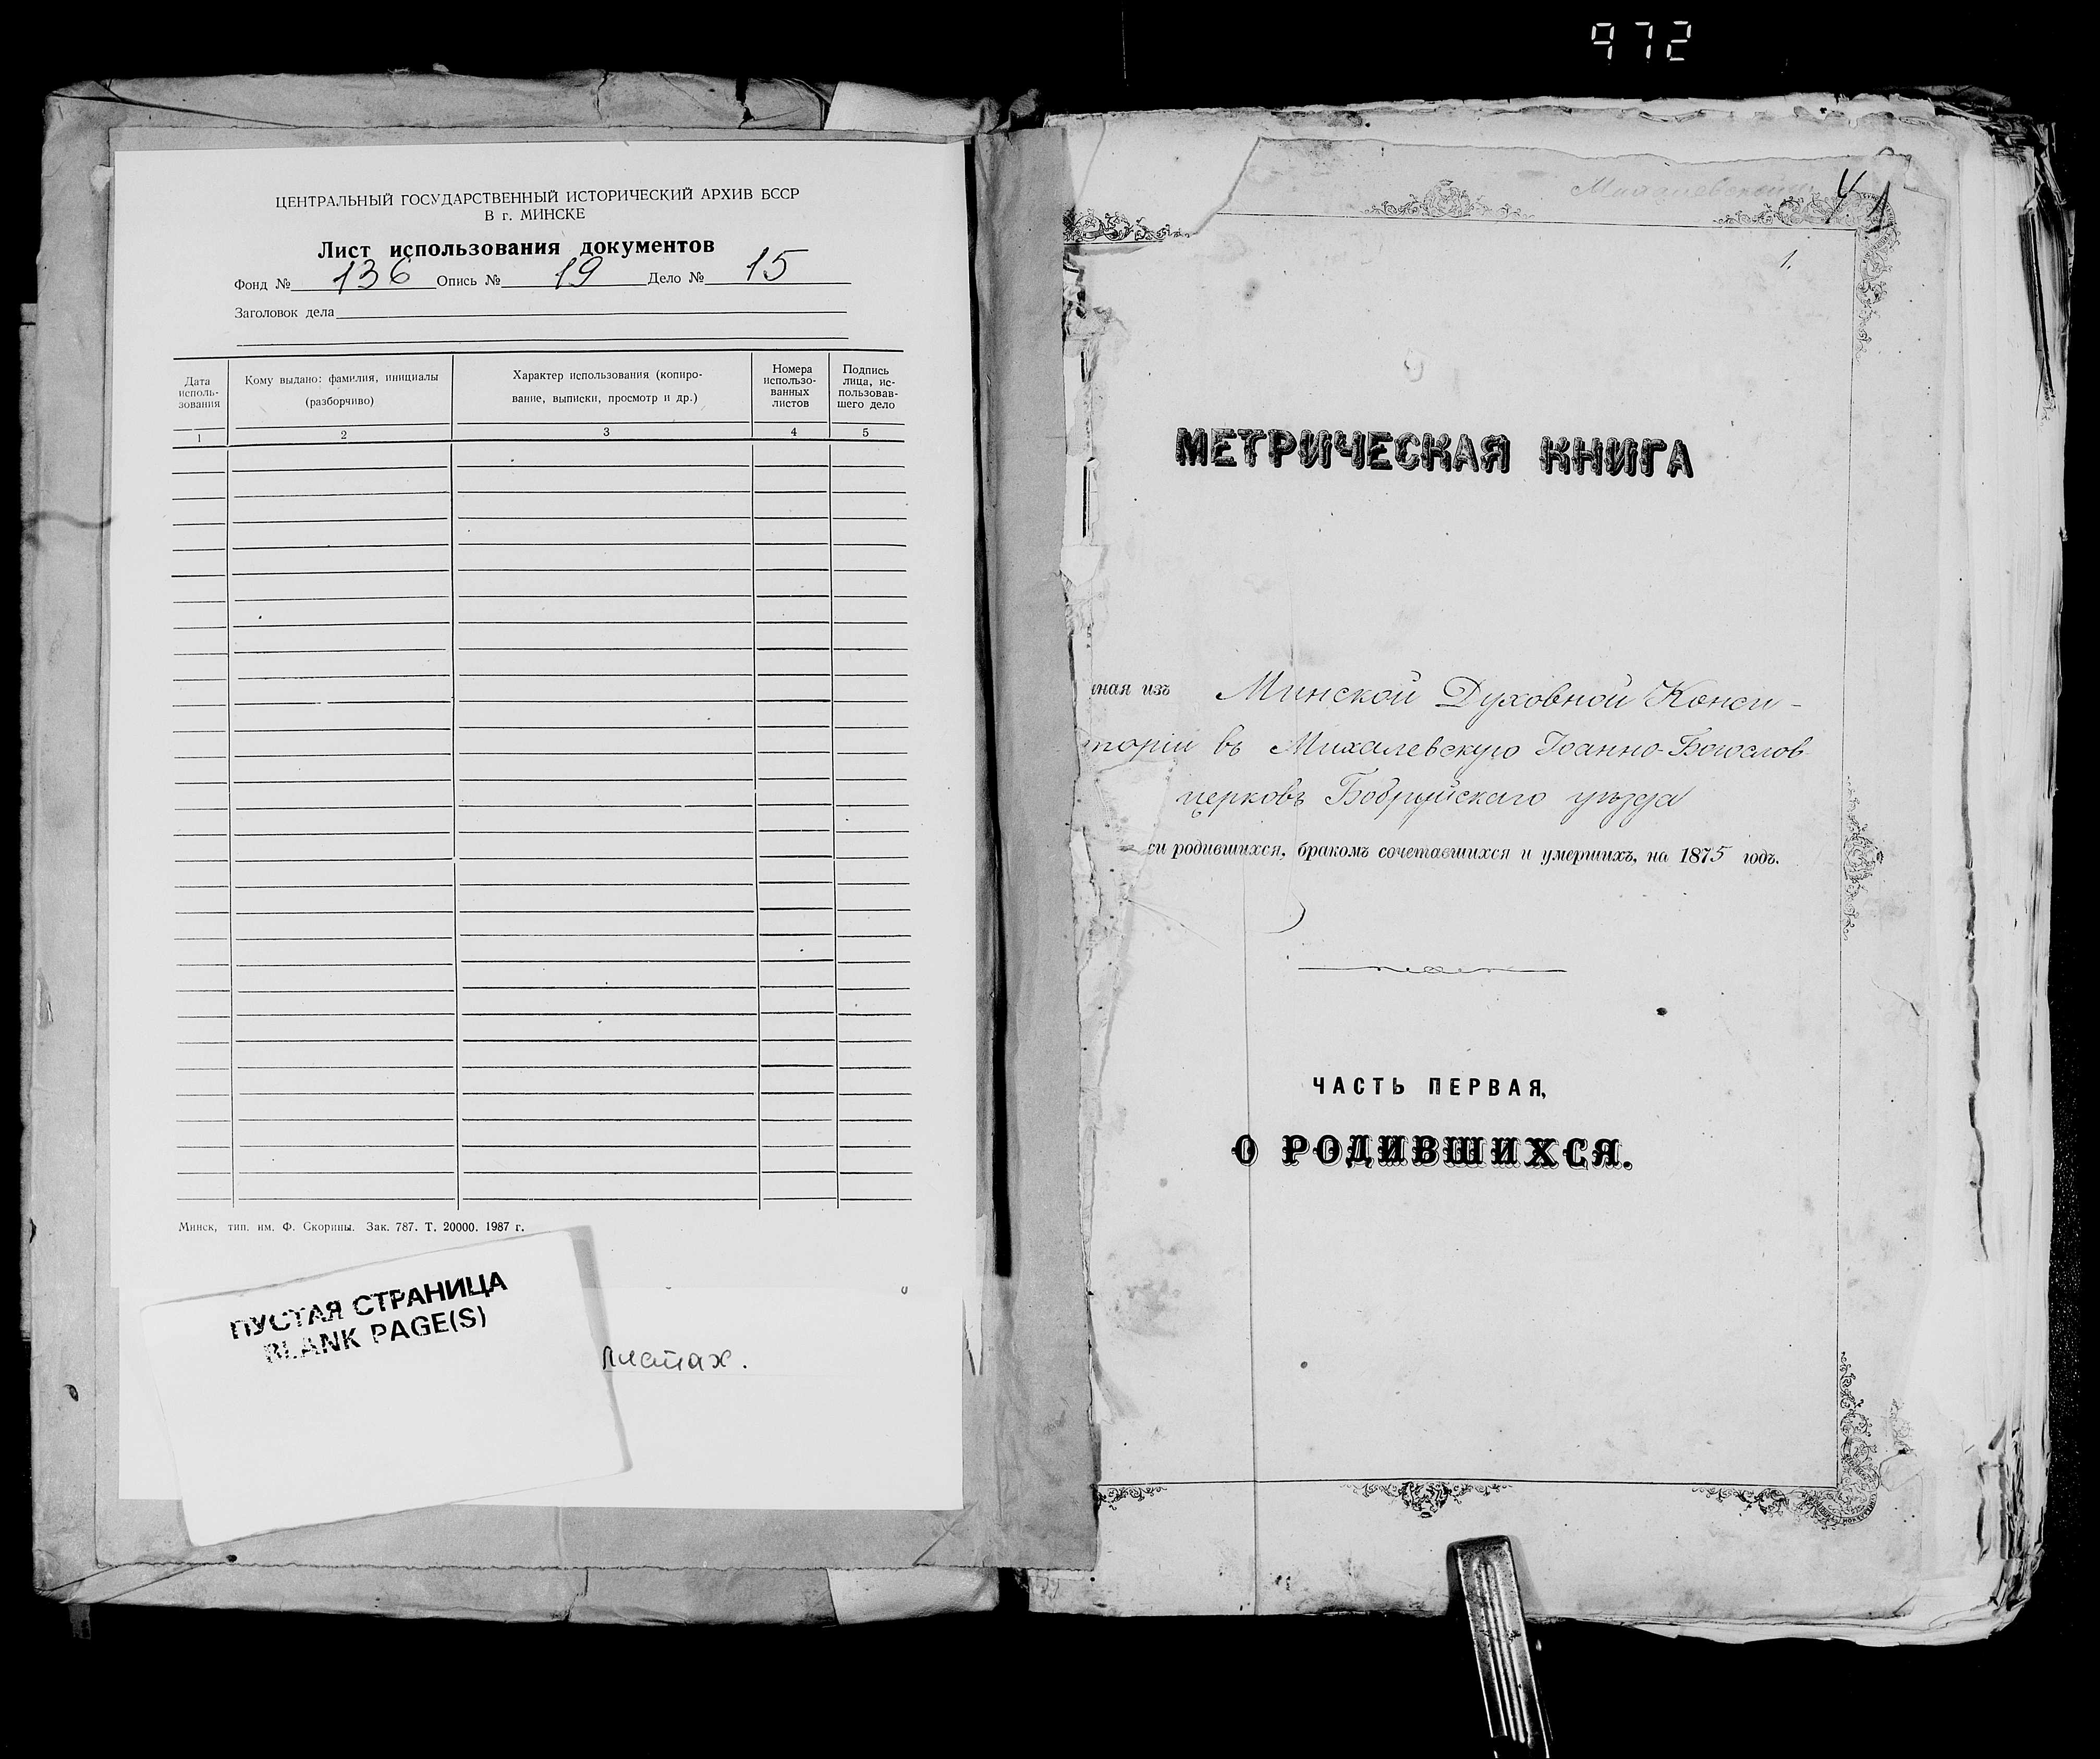 972
ЦЕНТРАЛЬНЫЙ ГОСУДАРСТВЕННЫЙ ИСТОРИЧЕСКИЙ АРХИВ БССР
В г. МИНСКЕ
Лист использования документов
Фонд № 136 Опись № 19 Дело № 15
Заголовок дела
Дата исполь-
зования
Кому выдано: фамилия, инициалы
(разборчиво)
Характер использования (копиро-
вание, выписки, просмотр и др.)
Номера
использо-
ванных
листов
Подпись
лица, ис-
пользовав-
шего дело
1 2 3 4 5
Минск, тип. им. Ф. Скорины. Зак. 787. Т. 20000. 1987 г.
ПУСТАЯ СТРАНИЦА
BLANK PAGE(S)
листах.
1.
МЕТРИЧЕСКАЯ КНИГА
ная изъ Минской Духовной Конси-
торіи въ Михалевскую Іоанно-Богослов
церковь Бобруйскаго уѣзда
си родившихся, бракомъ сочетавшихся и умершихъ, на 1875 годъ.
ЧАСТЬ ПЕРВАЯ,
О РОДИВШИХСЯ.